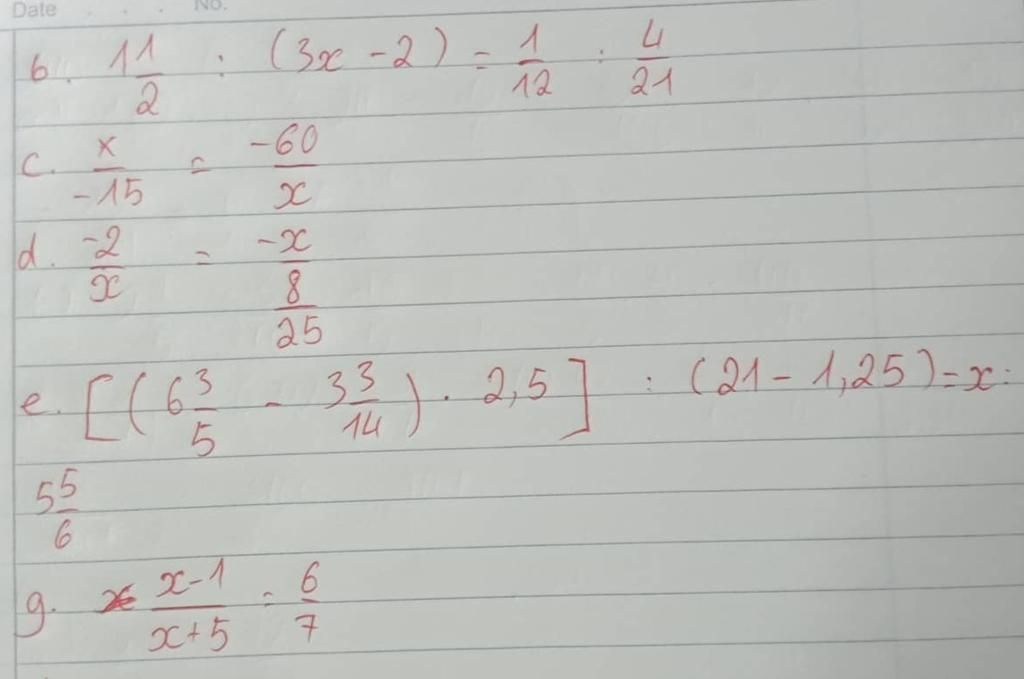 Date . . . No.
b. 1 1/2 : (3x - 2) = 1/12 : 4/21
c. x/-15 = -60/x
d. -2/x = -x/(8/25)
e. [(6 3/5 - 3 3/14) . 2,5] : (21 - 1,25) = x :
5 5/6
g. x-1/x+5 = 6/7